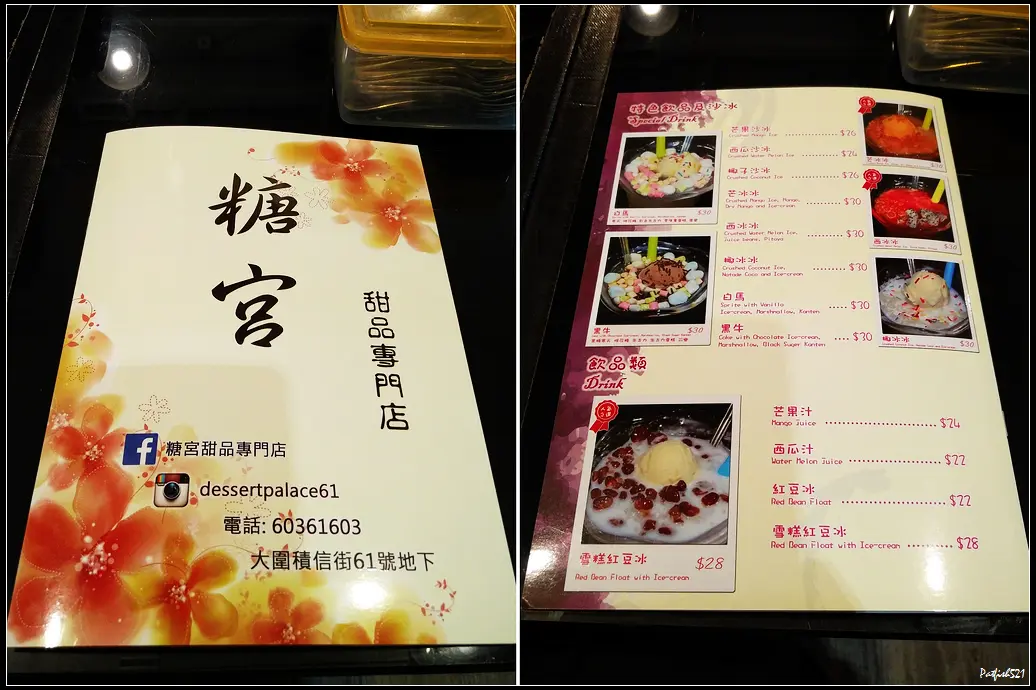 糖
宮
甜品專門店
糖宮甜品專門店
dessertpalace61
電話: 60361603
大圍積信街61號地下
特色飲品及沙冰
Special Drink
芒果沙冰
Crushed Mango Ice $26
西瓜沙冰
Crushed Water Melon Ice $26
椰子沙冰
Crushed Coconut Ice $26
芒冰冰
Crushed Mango Ice, Mango, $30
西冰冰
Crushed Water Melon Ice, $30
Juice beans, Pitaya
椰冰冰
Crushed Coconut Ice, $30
Natade Coco and Ice-cream
白馬
Sprite with Vanilla $30
Ice-cream, Marshmallow, Kanten
黑牛
Coke with Chocolate Ice-cream, $30
Marshmallow, Black Suger Kanten
白馬 $30
黑牛 $30
芒冰冰 $30
西冰冰 $30
椰冰冰 $30
飲品類
Drink
芒果汁
Mango Juice $24
西瓜汁
Water Melon Juice $22
紅豆冰
Red Bean Float $22
雪糕紅豆冰
Red Bean Float with Ice-cream $28
雪糕紅豆冰 $28
Red Bean Float with Ice-cream
Patfish521